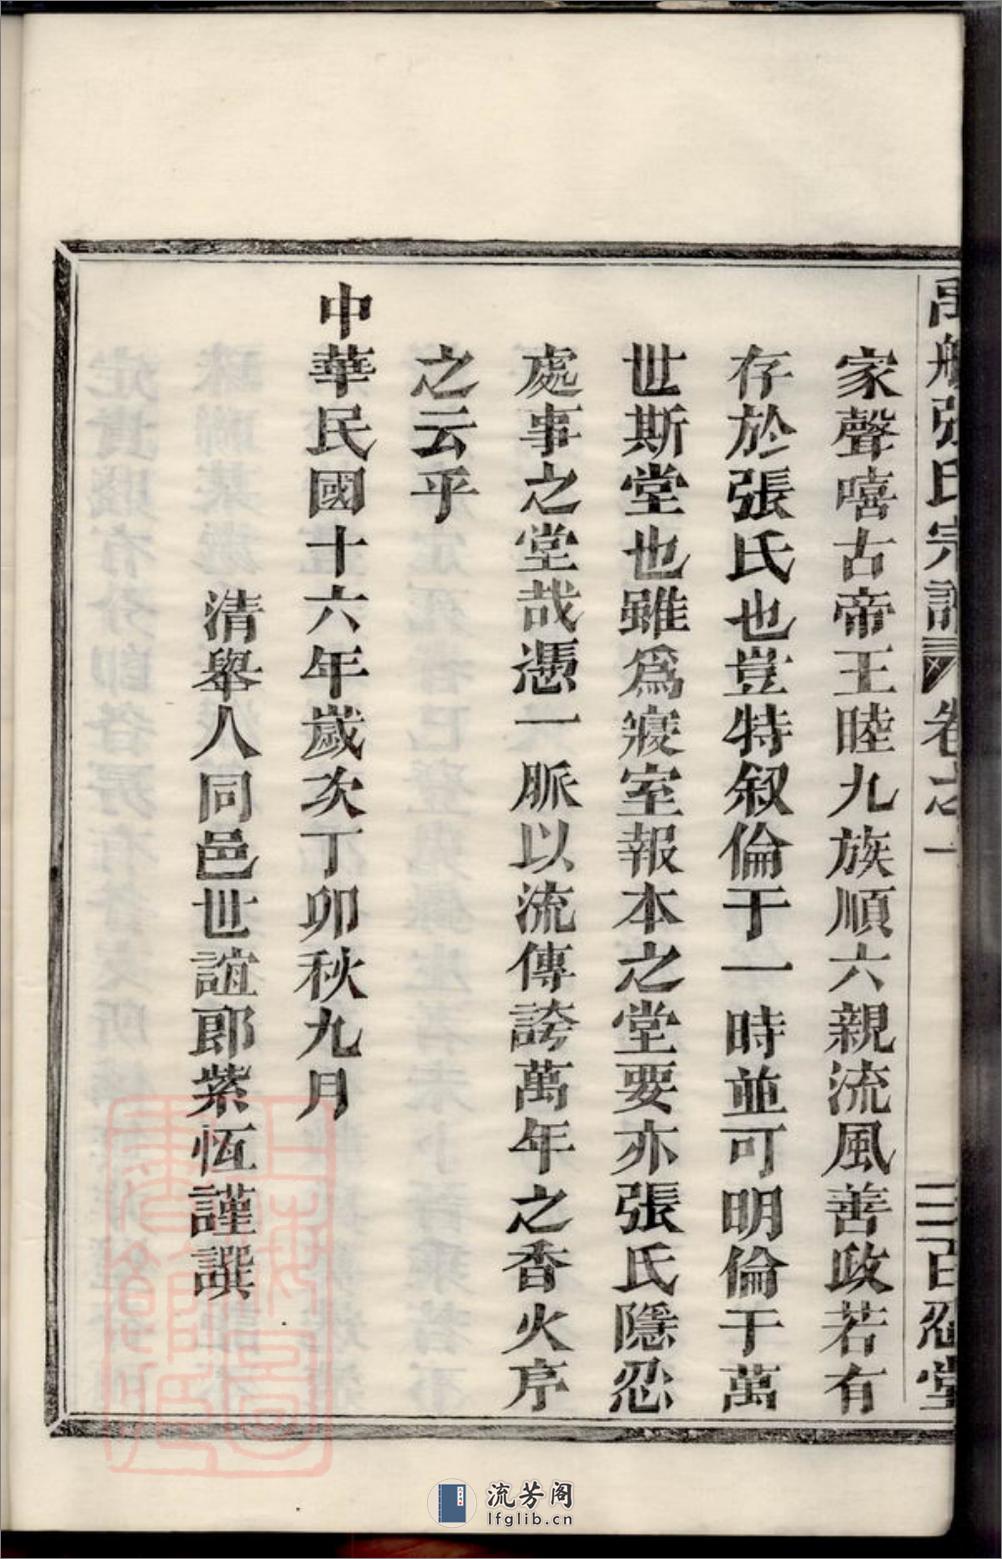 禹航張氏宗譜 卷之一 三 百忍堂
家聲嘻古帝王睦九族順六親流風善政若有
存於張氏也豈特叙倫于一時並可明倫于萬
世斯堂也雖爲寢室報本之堂要亦張氏隱忍
處事之堂哉憑一脈以流傳誇萬年之香火序
之云乎
中華民國十六年歲次丁卯秋九月
清舉人同邑世誼郎紫恆謹譔
流芳阁
lfglib.cn